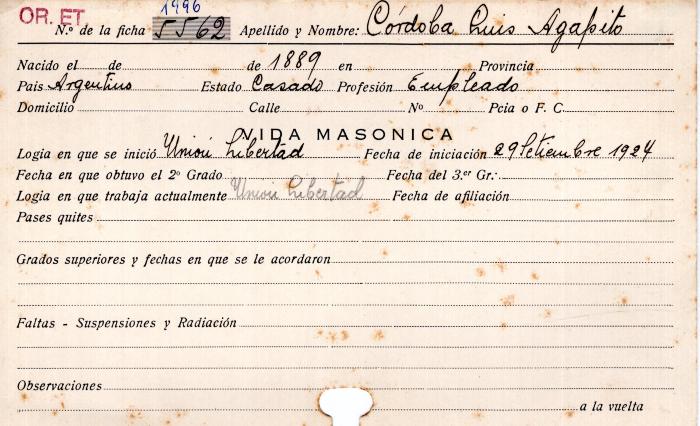 OR. ET.
1996
N.º de la ficha 5562 Apellido y Nombre: Córdoba Luis Agapito
Nacido el de de 1889 en Provincia
Pais Argentino Estado Casado Profesión Empleado
Domicilio Calle Nº Pcia o F. C.
VIDA MASONICA
Logia en que se inició Unión Libertad Fecha de iniciación 29 Setiembre 1924
Fecha en que obtuvo el 2º Grado Fecha del 3.er Gr.·
Logia en que trabaja actualmente Unión Libertad Fecha de afiliación
Pases quites
Grados superiores y fechas en que se le acordaron
Faltas - Suspensiones y Radiación
Observaciones
a la vuelta